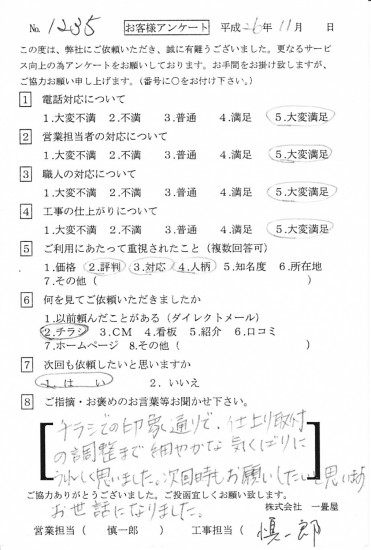 No. 1235 お客様アンケート 平成26年11月 日
この度は、弊社にご依頼いただき、誠に有難うございました。更なるサービ
ス向上の為アンケートをお願いしております。お手間をお掛け致しますが、
ご協力お願い申し上げます。（番号に○をお付け下さい。）
1 電話対応について
1.大変不満 2.不満 3.普通 4.満足 5.大変満足
2 営業担当者の対応について
1.大変不満 2.不満 3.普通 4.満足 5.大変満足
3 職人の対応について
1.大変不満 2.不満 3.普通 4.満足 5.大変満足
4 工事の仕上がりについて
1.大変不満 2.不満 3.普通 4.満足 5.大変満足
5 ご利用にあたって重視されたこと（複数回答可）
1.価格 2.評判 3.対応 4.人柄 5.知名度 6.所在地
7.その他（ ）
6 何を見てご依頼いただきましたか
1.以前頼んだことがある（ダイレクトメール）
2.チラシ 3.CM 4.看板 5.紹介 6.口コミ
7.ホームページ 8.その他（ ）
7 次回も依頼したいと思いますか
1. はい 2. いいえ
8 ご指摘・お褒めのお言葉等お聞かせ下さい。
チラシでの印象通りで、仕上り取付
の調整まで細やかな気くばりに
うれしく思いました。次回時もお願いしたいと思います
ご協力ありがとうございました。ご投函宜しくお願い致します。
お世話になりました。
株式会社 一畳屋
営業担当（ 慎一郎 ） 工事担当（ 慎一郎 ）